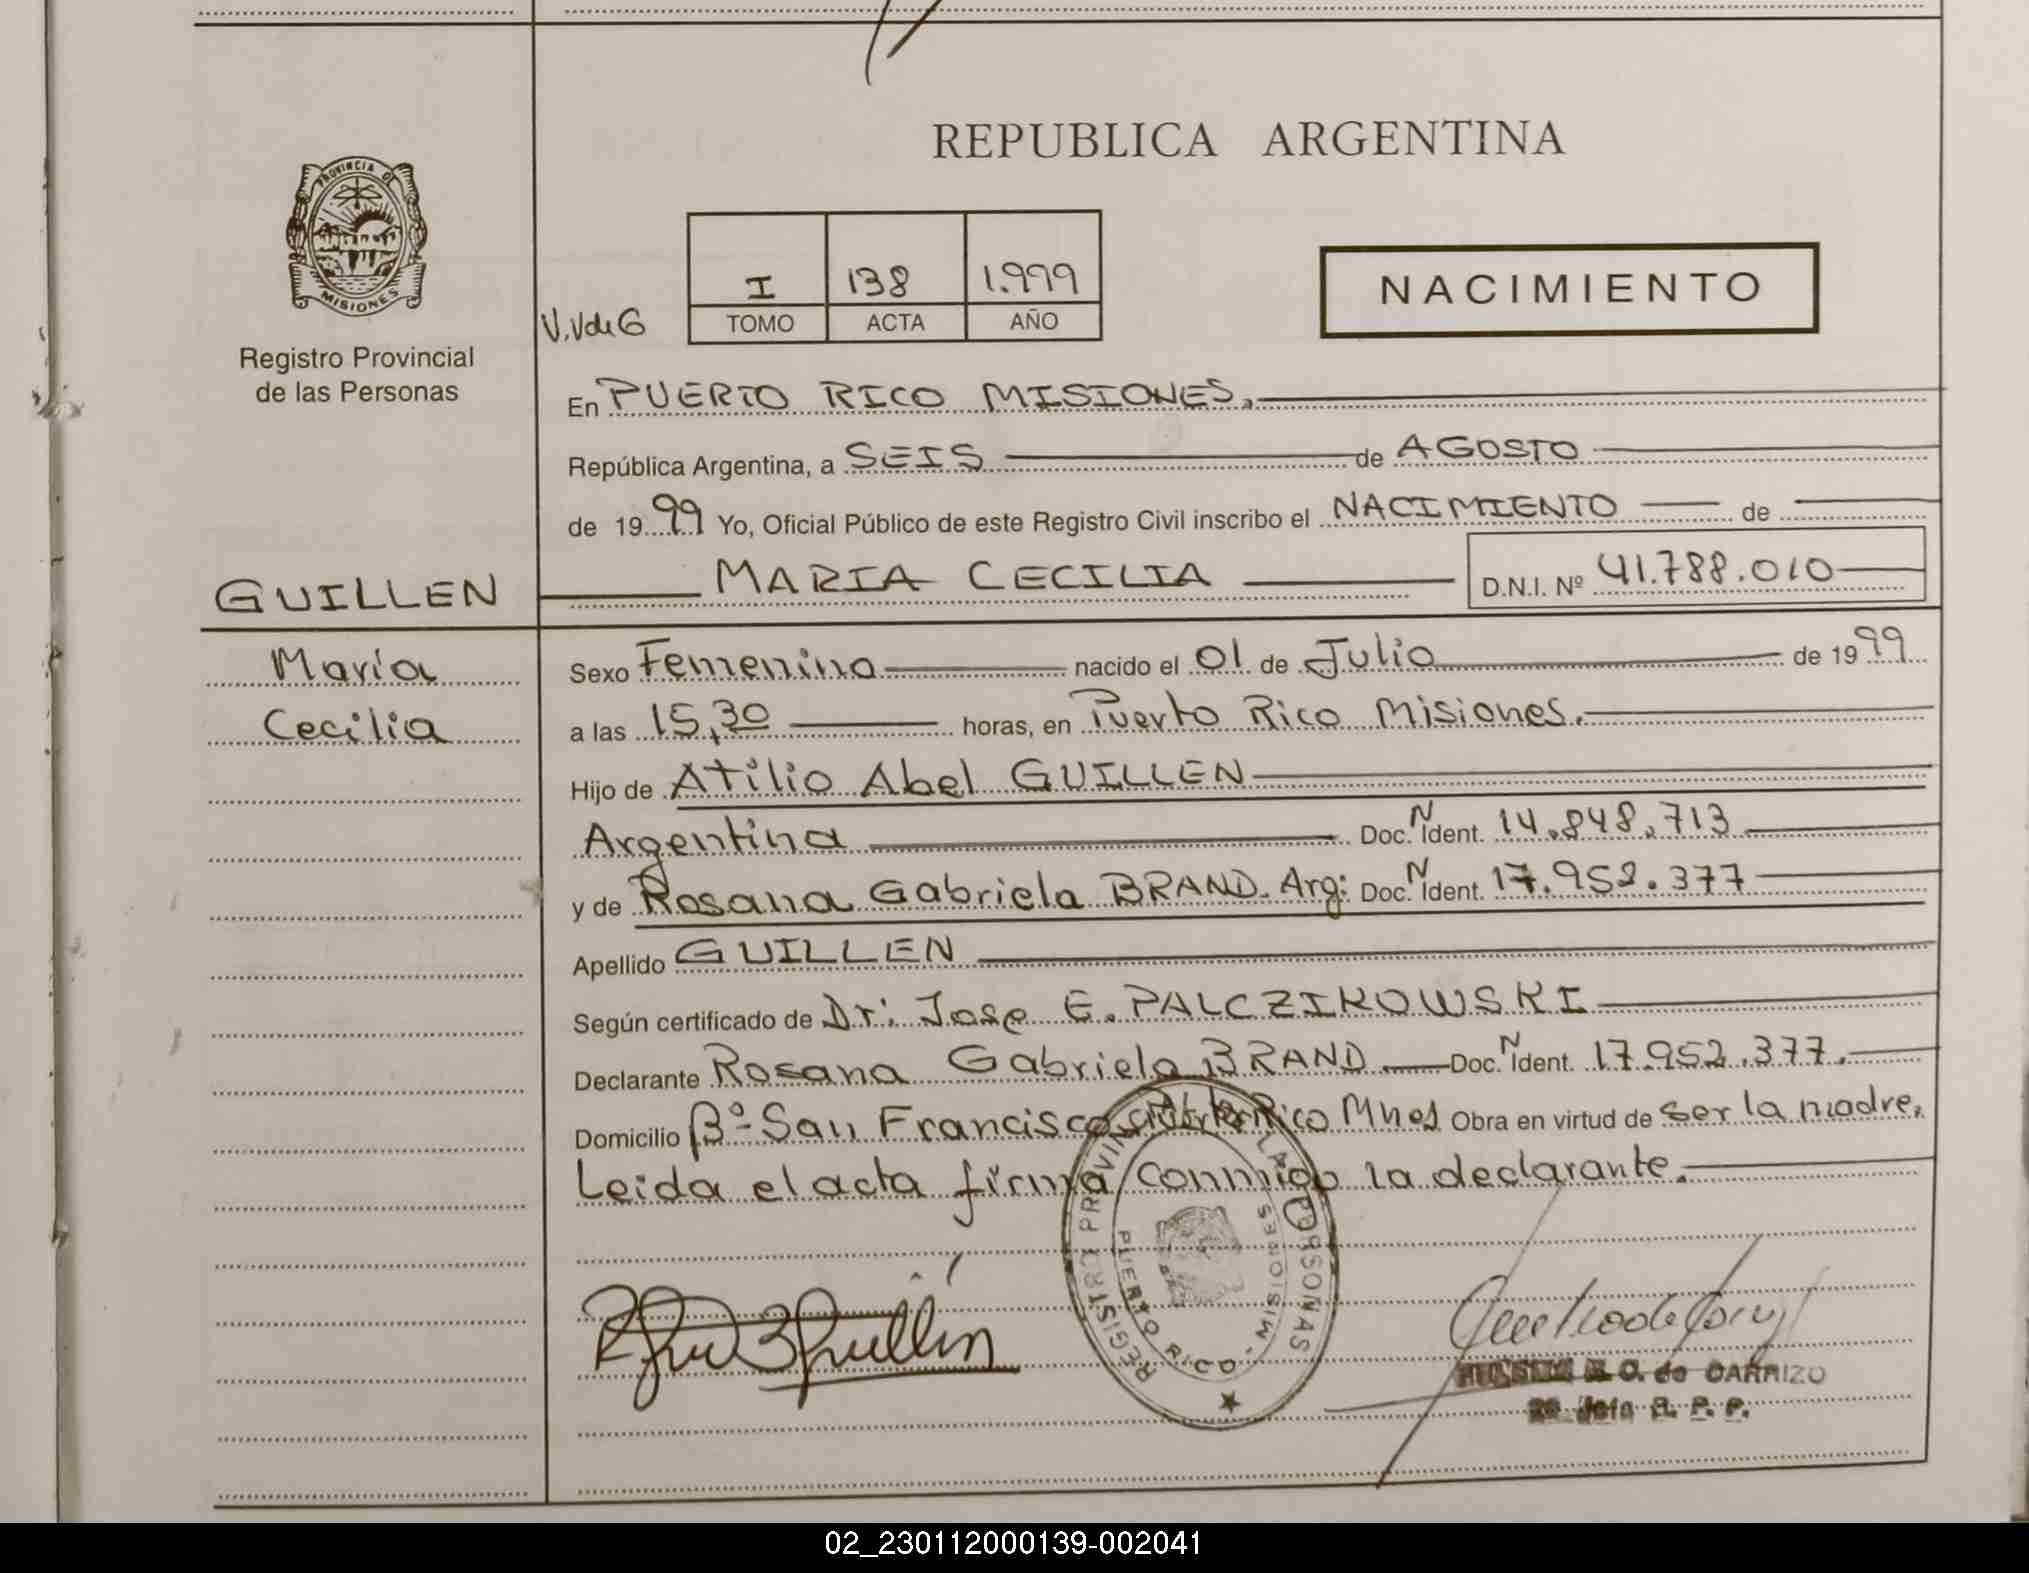 REPUBLICA ARGENTINA
PROVINCIA D
MISIONES
Registro Provincial
de las Personas
I 138 1.999
TOMO ACTA AÑO
V.VdeG
NACIMIENTO
En PUERTO RICO MISIONES.
República Argentina, a SEIS de AGOSTO
de 19 99 Yo, Oficial Público de este Registro Civil inscribo el NACIMIENTO de
GUILLEN MARIA CECILIA D.N.I. Nº 41.788.010
María
Cecilia
Sexo Femenino nacido el 01 de Julio de 19 99
a las 15,30 horas, en Puerto Rico Misiones.
Hijo de Atilio Abel GUILLEN
Argentina Doc. N Ident. 14.848.713
y de Rosana Gabriela BRAND. Arg: Doc. N Ident. 17.952.377
Apellido GUILLEN
Según certificado de Dr: Jose E. PALCZIKOWSKI
Declarante Rosana Gabriela BRAND Doc. N Ident. 17.952.377.
Domicilio Bº San Francisco Puerto Rico Mnes Obra en virtud de ser la madre.
Leida el acta firma conmigo la declarante.
REGISTRO PROVIN LAS PERSONAS
PUERTO RICO - MISIONES
O. de CARRIZO
Jefe R. P. P.
02_230112000139-002041